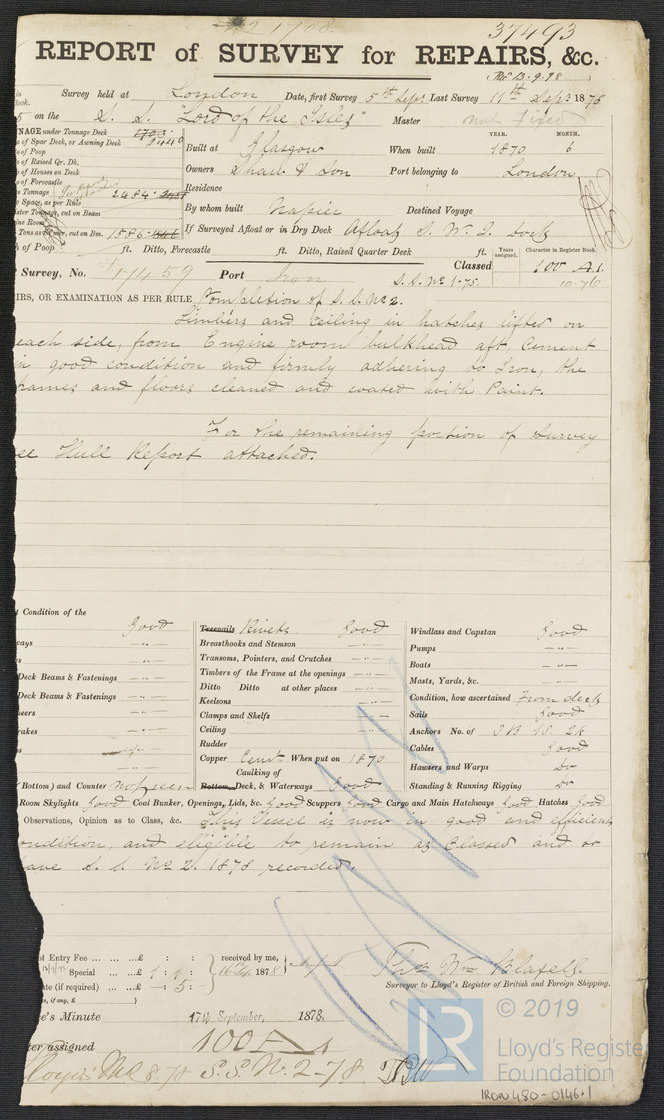 37493
REPORT of SURVEY for REPAIRS, &c.
Survey held at London Date, first Survey 5th Sept. Last Survey 11th Sept. 1878
on the S. S. "Lord of the Isles" Master not fixed
NAGE under Tonnage Deck
of Spar Deck, or Awning Deck
of Poop
of Raised Qr. Dk.
of Houses on Deck
of Forecastle
Tonnage 2484
Space, as per Rule
Tons as cut, on Bm. 1586
Built at Glasgow When built YEAR. 1870 MONTH. 6
Owners Shaw & Son Port belonging to London
Residence
By whom built Napier Destined Voyage
If Surveyed Afloat or in Dry Dock Afloat S. W. I. Dock
of Poop ft. Ditto, Forecastle ft. Ditto, Raised Quarter Deck ft.
Years assigned. Character in Register Book.
Survey, No. 11459 Port Iron Classed 100 A.1.
S. S. No 1-75. 10.76
IRS, OR EXAMINATION AS PER RULE Completion of S. S. No 2.
Limbers and Ceiling in hatches lifted on
each side, from Engine room bulkhead aft Cement
in good condition and firmly adhering to Iron, the
frames and floors cleaned and coated with Paint.
For the remaining portion of survey
see Hull Report attached.
Condition of the
Good
Deck Beams & Fastenings -"-
Deck Beams & Fastenings -"-
Bottom) and Counter not seen
Treenails Rivets Good
Breasthooks and Stemson -"-
Transoms, Pointers, and Crutches -"-
Timbers of the Frame at the openings -"-
Ditto Ditto at other places -"-
Keelsons -"-
Clamps and Shelfs -"-
Ceiling -"-
Rudder -"-
Copper Cemt When put on 1870
Caulking of
Bottom, Deck, & Waterways Good
Windlass and Capstan Good
Pumps -"-
Boats -"-
Masts, Yards, &c. -"-
Condition, how ascertained From deck
Sails Good
Anchors No. of 3 B 1 S. 2 K
Cables Good
Hawsers and Warps Do
Standing & Running Rigging Do
Room Skylights Good Coal Bunker, Openings, Lids, &c. Good Scuppers Good Cargo and Main Hatchways Good Hatches Good
Observations, Opinion as to Class, &c. This Vessel is now in good and efficient
condition, and eligible to remain as Classed and to
have S. S. No 2. 1878 recorded.
of Entry Fee ... ... ...£ : :
Special ... ...£ 1 : 1 :
(if required) ... — : 5 :
received by me,
1878
Thos Wm Blaxell.
Surveyor to Lloyd's Register of British and Foreign Shipping.
Minute 17th September, 1878.
assigned 100 A 1
Lloyds MC 8.78 S.S. No. 2-78
© 2019
LR
Lloyd's Register
Foundation
IRON480-0146.1